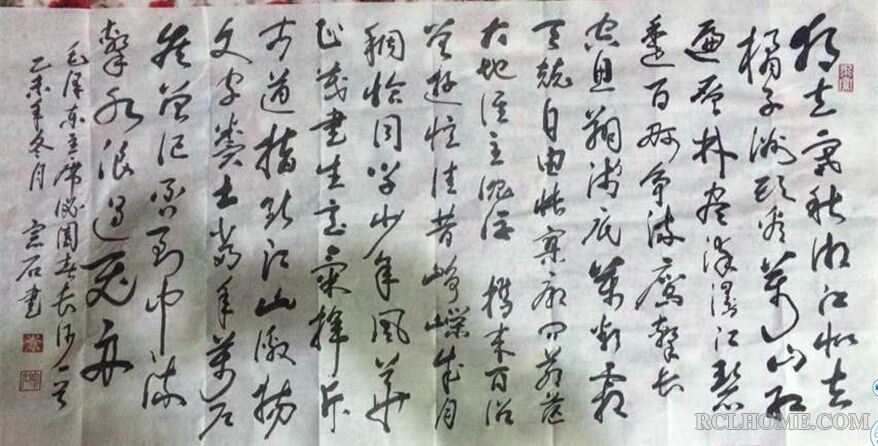 独立寒秋湘江北去
橘子洲头看萬山红
遍层林尽染漫江碧
透百舸争流鹰擊长
空鱼翔浅底萬类霜
天竞自由怅寥廓问苍茫
大地谁主沉浮 携来百侣
曾游忆往昔峥嵘岁月
稠恰同学少年风华
正茂书生意气挥斥
方遒指点江山激扬
文字粪土当年萬户
侯曾记否到中流
擊水浪遏飞舟
毛泽东主席沁园春长沙一首
乙未年冬月 石书
RCLHOME.COM